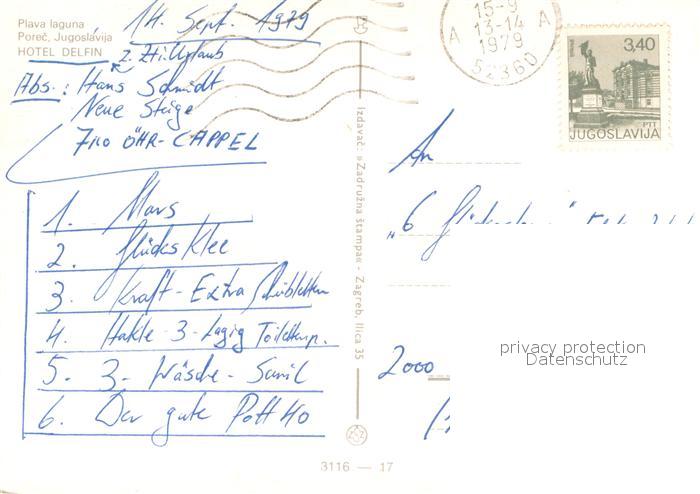 Plava laguna
Poreč, Jugoslavija
HOTEL DELFIN
14. Sept. 1979
z. Zt. Urlaub
Abs.: Hans Schmidt
Neue Steige
7110 ÖHR-CAPPEL
1. Mars
2. Glücks Klee
3. Kraft-Extra Scheibletten
4. Hakle-3-lagig Toilettenp.
5. 3-Wäsche-Sunil
6. Der gute Pott 40
3116 — 17
Izdavač: »Zadružna štampa« - Zagreb, Ilica 35
15-9
13-14
1979
A A
52360
3,40
PTT
JUGOSLAVIJA
An
„6
2000
privacy protection
Datenschutz